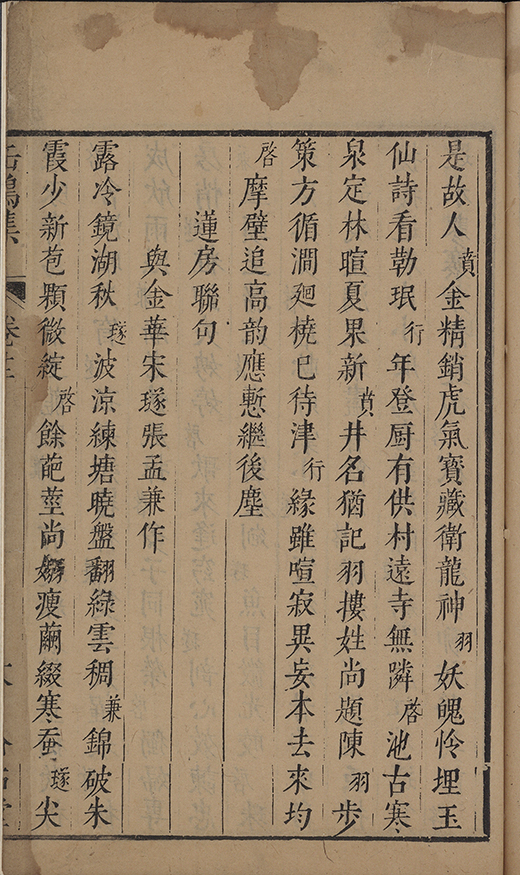 是故人賁金精銷虎氣寶藏衛龍神羽妖魄怜埋玉
仙詩看勒珉行年登厨有供村遠寺無隣啓池古寒
泉定林暄夏果新賁井名猶記羽摟姓尚題陳羽步
策方循澗廻橈已待津行緣雖喧寂異妄本去來均
啓摩壁追高韵應慙繼後塵
蓮房聯句
與金華宋璲張孟兼作
露冷鏡湖秋璲波涼練塘曉盤翻綠雲稠兼錦破朱
霞少新苞顆微綻啓餘葩莖尚嫋瘦繭綴寒蚕璲尖